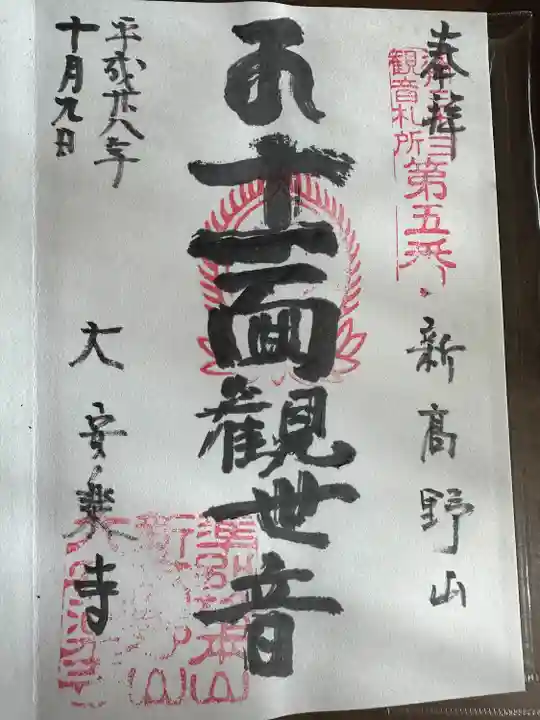 奉拝
観音札所
第五番
新高野山
十一面観世音
大安楽寺
平成廿八年
十月九日